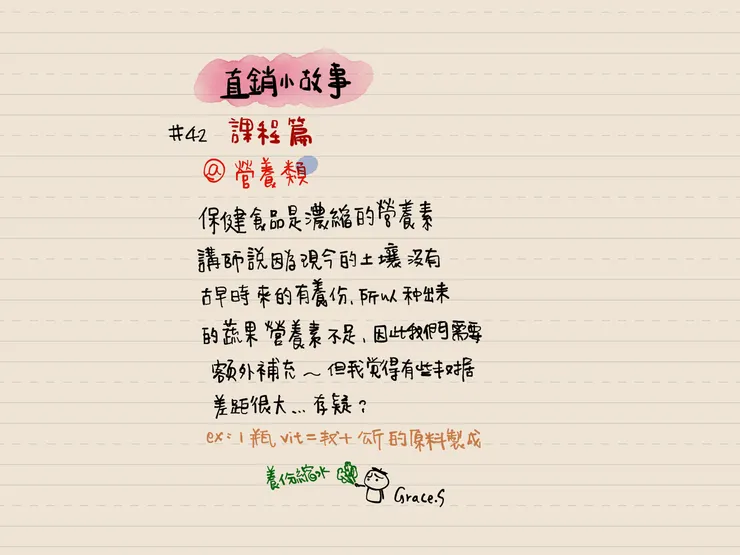 直銷小故事
#42 課程篇
@營養類
保健食品是濃縮的營養素
講師說因為現今的土壤沒有
古早時來的有養份,所以种出來
的蔬果營養素不足,因此我們需要
額外補充~但我覚得有些数据
差距很大...存疑?
ex:1瓶vit=数十公斤的原料製成
養份縮水
Grace.S